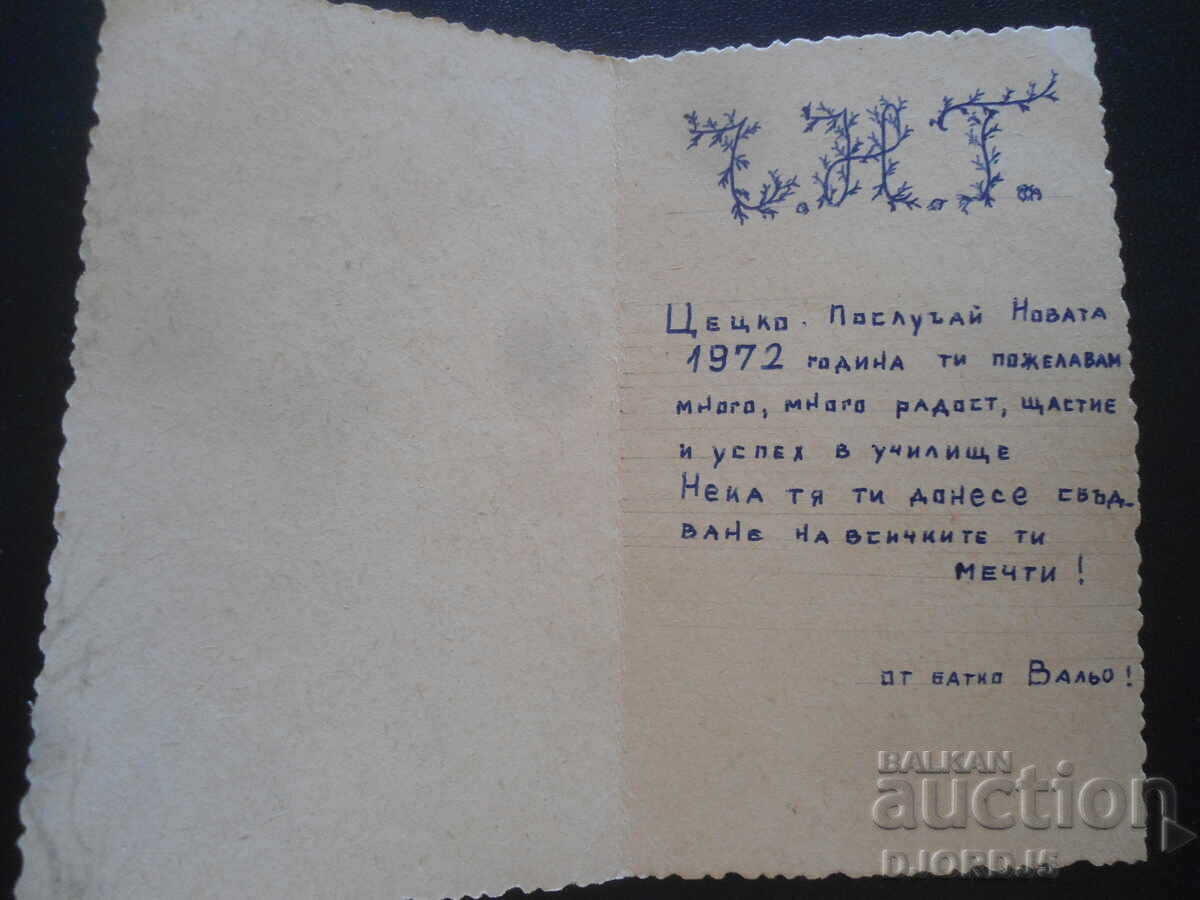 Ч.Н.Г.
Цецко. Послучай Новата
1972 година ти пожелавам
много, много радост, щастие
и успех в училище
Нека тя ти донесе сбъд-
ване на всичките ти
мечти!
от батко Вальо!
BALKAN
auction
DJORDJ5